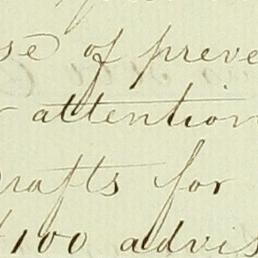 se of preve
attention
rafts for
100 advis